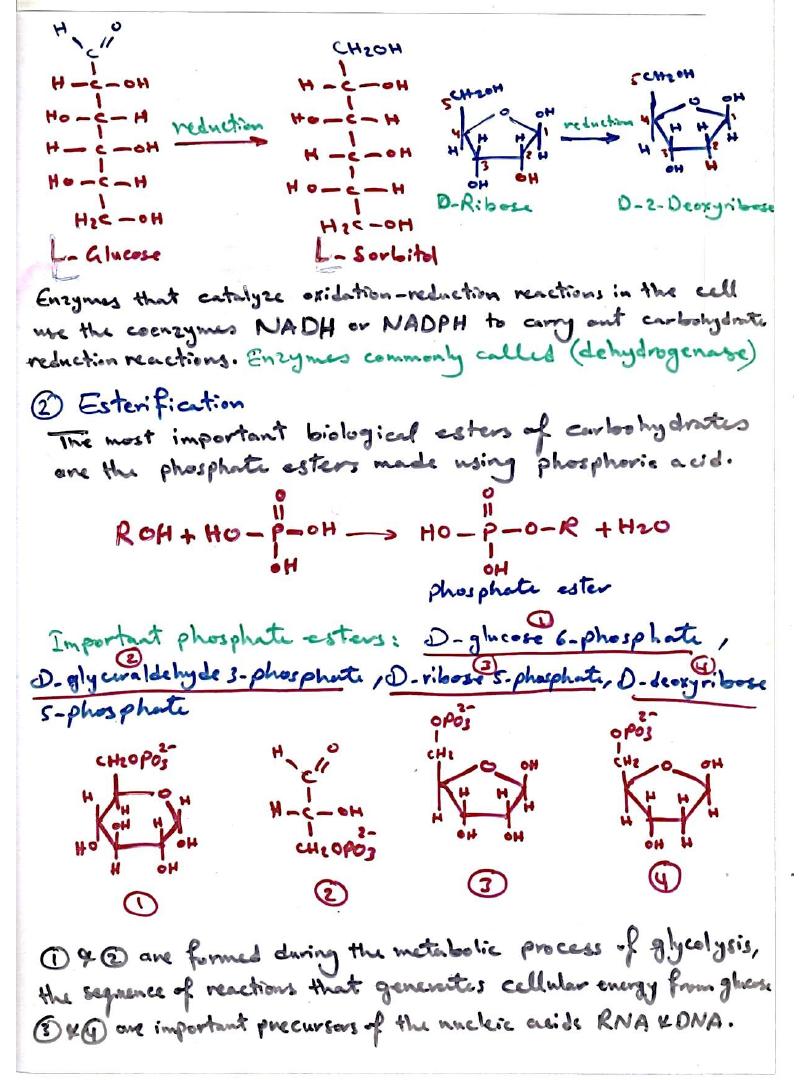 H O
C
H-C-OH
HO-C-H
H-C-OH
HO-C-H
H2C-OH
L-Glucose
reduction
CH2OH
H-C-OH
HO-C-H
H-C-OH
HO-C-H
H2C-OH
L-Sorbitol
5 CH2OH
O OH
4 H H 1
H 3 2 H
OH OH
D-Ribose
reduction
5 CH2OH
O OH
4 H H 1
H 3 2 H
OH H
D-2-Deoxyribose
Enzymes that catalyze oxidation-reduction reactions in the cell
use the coenzymes NADH or NADPH to carry out carbohydrate
reduction reactions. Enzymes commonly called (dehydrogenase)
② Esterification
The most important biological esters of carbohydrates
are the phosphate esters made using phosphoric acid.
O O
ROH + HO-P-OH → HO-P-O-R + H2O
OH OH
phosphate ester
Important phosphate esters: D-glucose 6-phosphate ①,
D-glyceraldehyde 3-phosphate ②, D-ribose 5-phosphate ③, D-deoxyribose ④
5-phosphate
CH2OPO3 2-
H O H
H
OH H
HO OH
H OH
①
H O
C
H-C-OH
CH2OPO3 2-
②
OPO3 2-
CH2
O OH
H H
H H
OH OH
③
OPO3 2-
CH2
O OH
H H
H H
OH H
④
① & ② are formed during the metabolic process of glycolysis,
the sequence of reactions that generates cellular energy from glucose
③ & ④ are important precursors of the nucleic acids RNA & DNA.